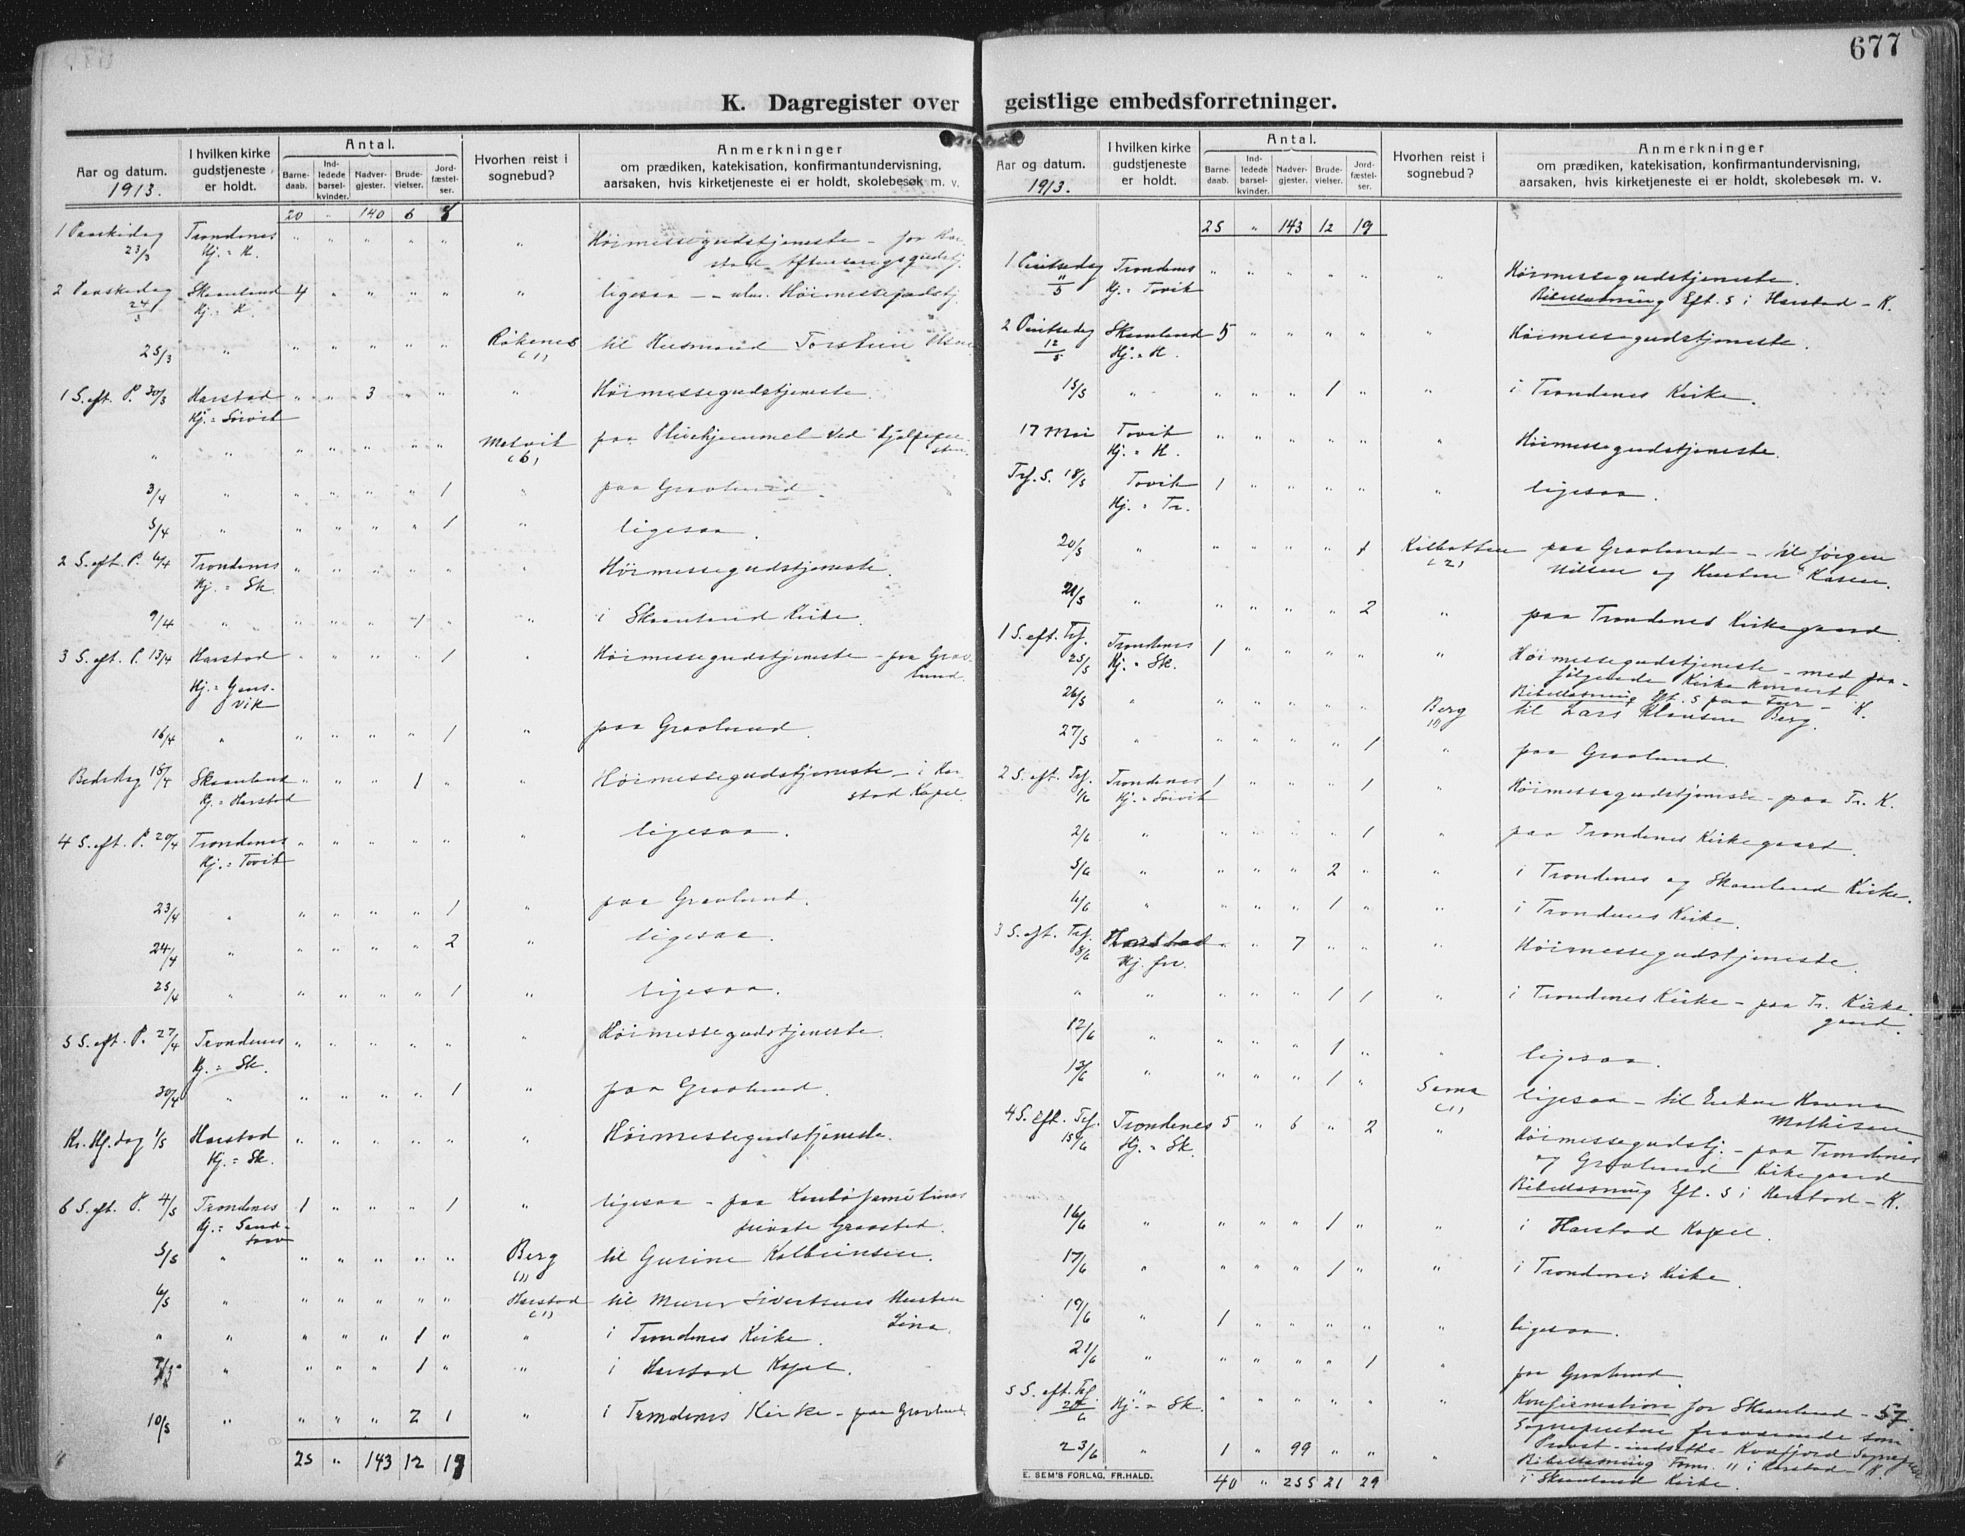 677
K. Dagregister over geistlige embedsforretninger.
Aar og datum. 1913.
I hvilken kirke gudstjeneste er holdt.
Antal.
Barne-daab. Ind-ledede barsel-kvinder. Nadver-gjester. Brude-vielser. Jord-fæstel-ser.
Hvorhen reist i sognebud?
Anmerkninger
om prædiken, katekisation, konfirmantundervisning,
aarsaken, hvis kirketjeneste ei er holdt, skolebesøk m. v.
20 " 140 6 8
1 Paaskedag 23/3 Trondenes Hj. = K. " " " " " " Høimessegudstjeneste - for Har-
stad Aftensangsgudstj.
2 Paaskedag 24/3 Skaanland Hj. = K. 4 " " " " " ligesaa - Høimessegudstj.
25/3 " " " " " " Røkenes (1) til Husmand Torstein Olsen
1 S. eft. P. 30/3 Harstad Hj. = Sørvik " " 3 " " " Høimessegudstjeneste.
" " " " " " " Medvik (6) paa Pleiehjemmet ved
3/4 " " " " " 1 " paa Gravlund.
5/4 " " " " " 1 " ligesaa.
2 S. eft. P. 6/4 Trondenes Hj. = Sk. " " " " " " Høimessegudstjeneste.
9/4 " " " " 1 " " i Skaanland Kirke.
3 S. eft. P. 13/4 Harstad Hj. = Gans-
vik " " " " 1 " Høimessegudstjeneste - paa Grav-
lund.
16/4 " " " " " 1 " paa Gravlund.
Bededag 18/4 Skaanland Hj. = Harstad " " " 1 " " Høimessegudstjeneste - i Har-
stad Kapel.
4 S. eft. P. 20/4 Trondenes Hj. = Tovik " " " " " " ligesaa.
23/4 " " " " " 1 " paa Gravlund.
24/4 " " " " " 2 " ligesaa.
25/4 " " " " " 1 " ligesaa.
5 S. eft. P. 27/4 Trondenes Hj. = Sk. " " " " " " Høimessegudstjeneste.
30/4 " " " " " 1 " paa Gravlund.
Kr. Hf. dag 1/5 Harstad Hj. = Sk. " " " " " " Høimessegudstjeneste.
6 S. eft. P. 4/5 Trondenes Hj. = Sand-
torv 1 " " " 1 " ligesaa - paa
private Gravsted.
5/5 " " " " " " Berg (1) til Gurine Kolbeinsen.
6/5 " " " " " " Harstad (1) til Murer Sivertsens Hustru
Lina.
" " " " " 1 " " i Trondenes Kirke.
" " " " 1 " " i Harstad Kapel.
10/5 " " " " 2 1 " i Trondenes Kirke - paa Gravlund.
25 " 143 12 19
Aar og datum. 1913.
I hvilken kirke gudstjeneste er holdt.
Antal.
Barne-daab. Ind-ledede barsel-kvinder. Nadver-gjester. Brude-vielser. Jord-fæstel-ser.
Hvorhen reist i sognebud?
Anmerkninger
om prædiken, katekisation, konfirmantundervisning,
aarsaken, hvis kirketjeneste ei er holdt, skolebesøk m. v.
25 " 143 12 19
1 Pintsedag 11/5 Trondenes Hj. = Tovik " " " " " " Høimessegudstjeneste.
Bibellæsning Eft. 5 i Harstad - K.
2 Pintsedag 12/5 Skaanland Hj. = H. 5 " " " " " Høimessegudstjeneste.
15/5 " " " " 1 " " i Trondenes Kirke.
17 Mai Tovik Hj. = H. " " " " " " Høimessegudstjeneste.
Trf. S. 18/5 Tovik Hj. = Tr. 1 " " " " " ligesaa.
20/5 " " " " " 1 Kilbotten (2) paa Gravlund - til Jørgen
Nilsen og Hustru Karen.
21/5 " " " " " 2 " paa Trondenes Kirkegaard.
1 S. eft. Trf. 25/5 Trondenes Hj. = Sk. 1 " " " " " Høimessegudstjeneste - med paa-
følgende Kirkekonsert
Bibellæsning Eft. 5 - K.
26/5 " " " " " " Berg (1) til Lars Klausen Berg.
27/5 " " " " " 1 " paa Gravlund.
2 S. eft. Trf. 1/6 Trondenes Hj. = Sørvik 1 " " " 1 " Høimessegudstjeneste - paa Tr. K.
2/6 " " " " " 1 " paa Trondenes Kirkegaard.
5/6 " " " " 2 " " i Trondenes og Skaanland Kirke.
6/6 " " " " 1 " " i Trondenes Kirke.
3 S. eft. Trf. 8/6 Harstad Hj. fri. " " 7 " " " Høimessegudstjeneste.
" " " " " 1 1 " i Trondenes Kirke - paa Tr. Kirke-
gaard.
12/6 " " " " 1 " " ligesaa.
13/6 " " " " 1 " Sama (1) ligesaa - til Enken
Mathisen
4 S. eft. Trf. 15/6 Trondenes Hj. = Sk. 5 " 6 " 2 " Høimessegudstj. - paa Trondenes
og Gravlund Kirkegaard
Bibellæsning Eft. 5 i Harstad - K.
16/6 " " " " 1 " " i Harstad Kapel.
17/6 " " " " 1 " " i Trondenes Kirke.
19/6 " 1 " " " " " ligesaa.
21/6 " " " " " 1 " paa Gravlund.
5 S. eft. Trf. 22/6 " Hj. = Sk. " " " " " " Konfirmation for Skaanland - 57
Sognepresten fraværende som
Provst - indsatte Kvæfjord Sognepr.
Bibellæsning Form. 11 i Harstad - K.
23/6 " 1 " 99 " " " i Skaanland Kirke.
40 " 255 21 29
E. SEM'S FORLAG, FR.HALD.